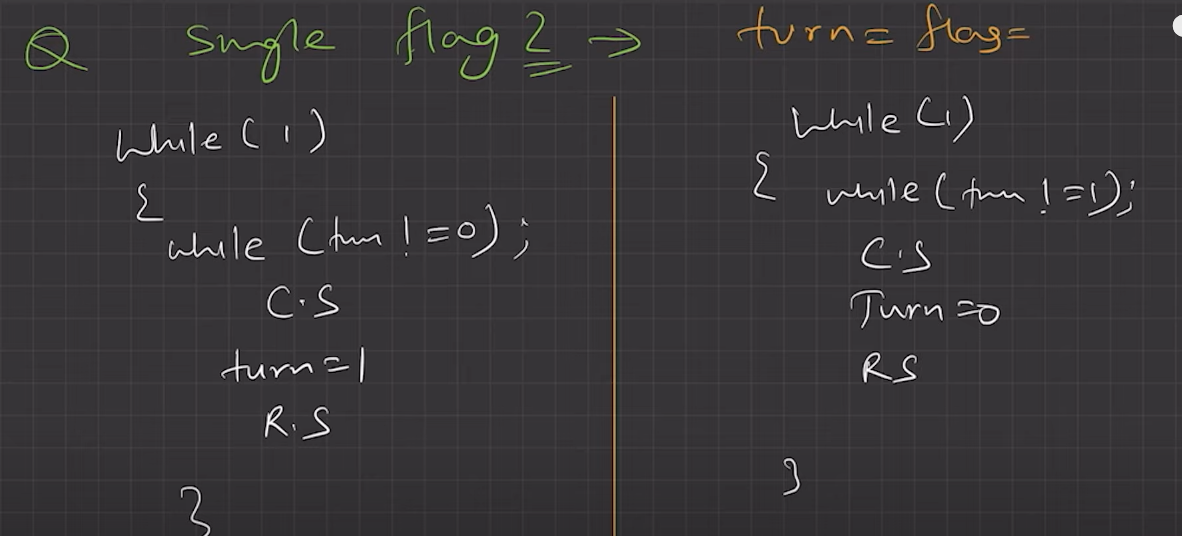 Q Single flag 2 → turn = flag =
while (1)
{
while (turn != 0);
C.S
turn = 1
R.S
}
while (1)
{ while (turn != 1);
C.S
Turn = 0
RS
}